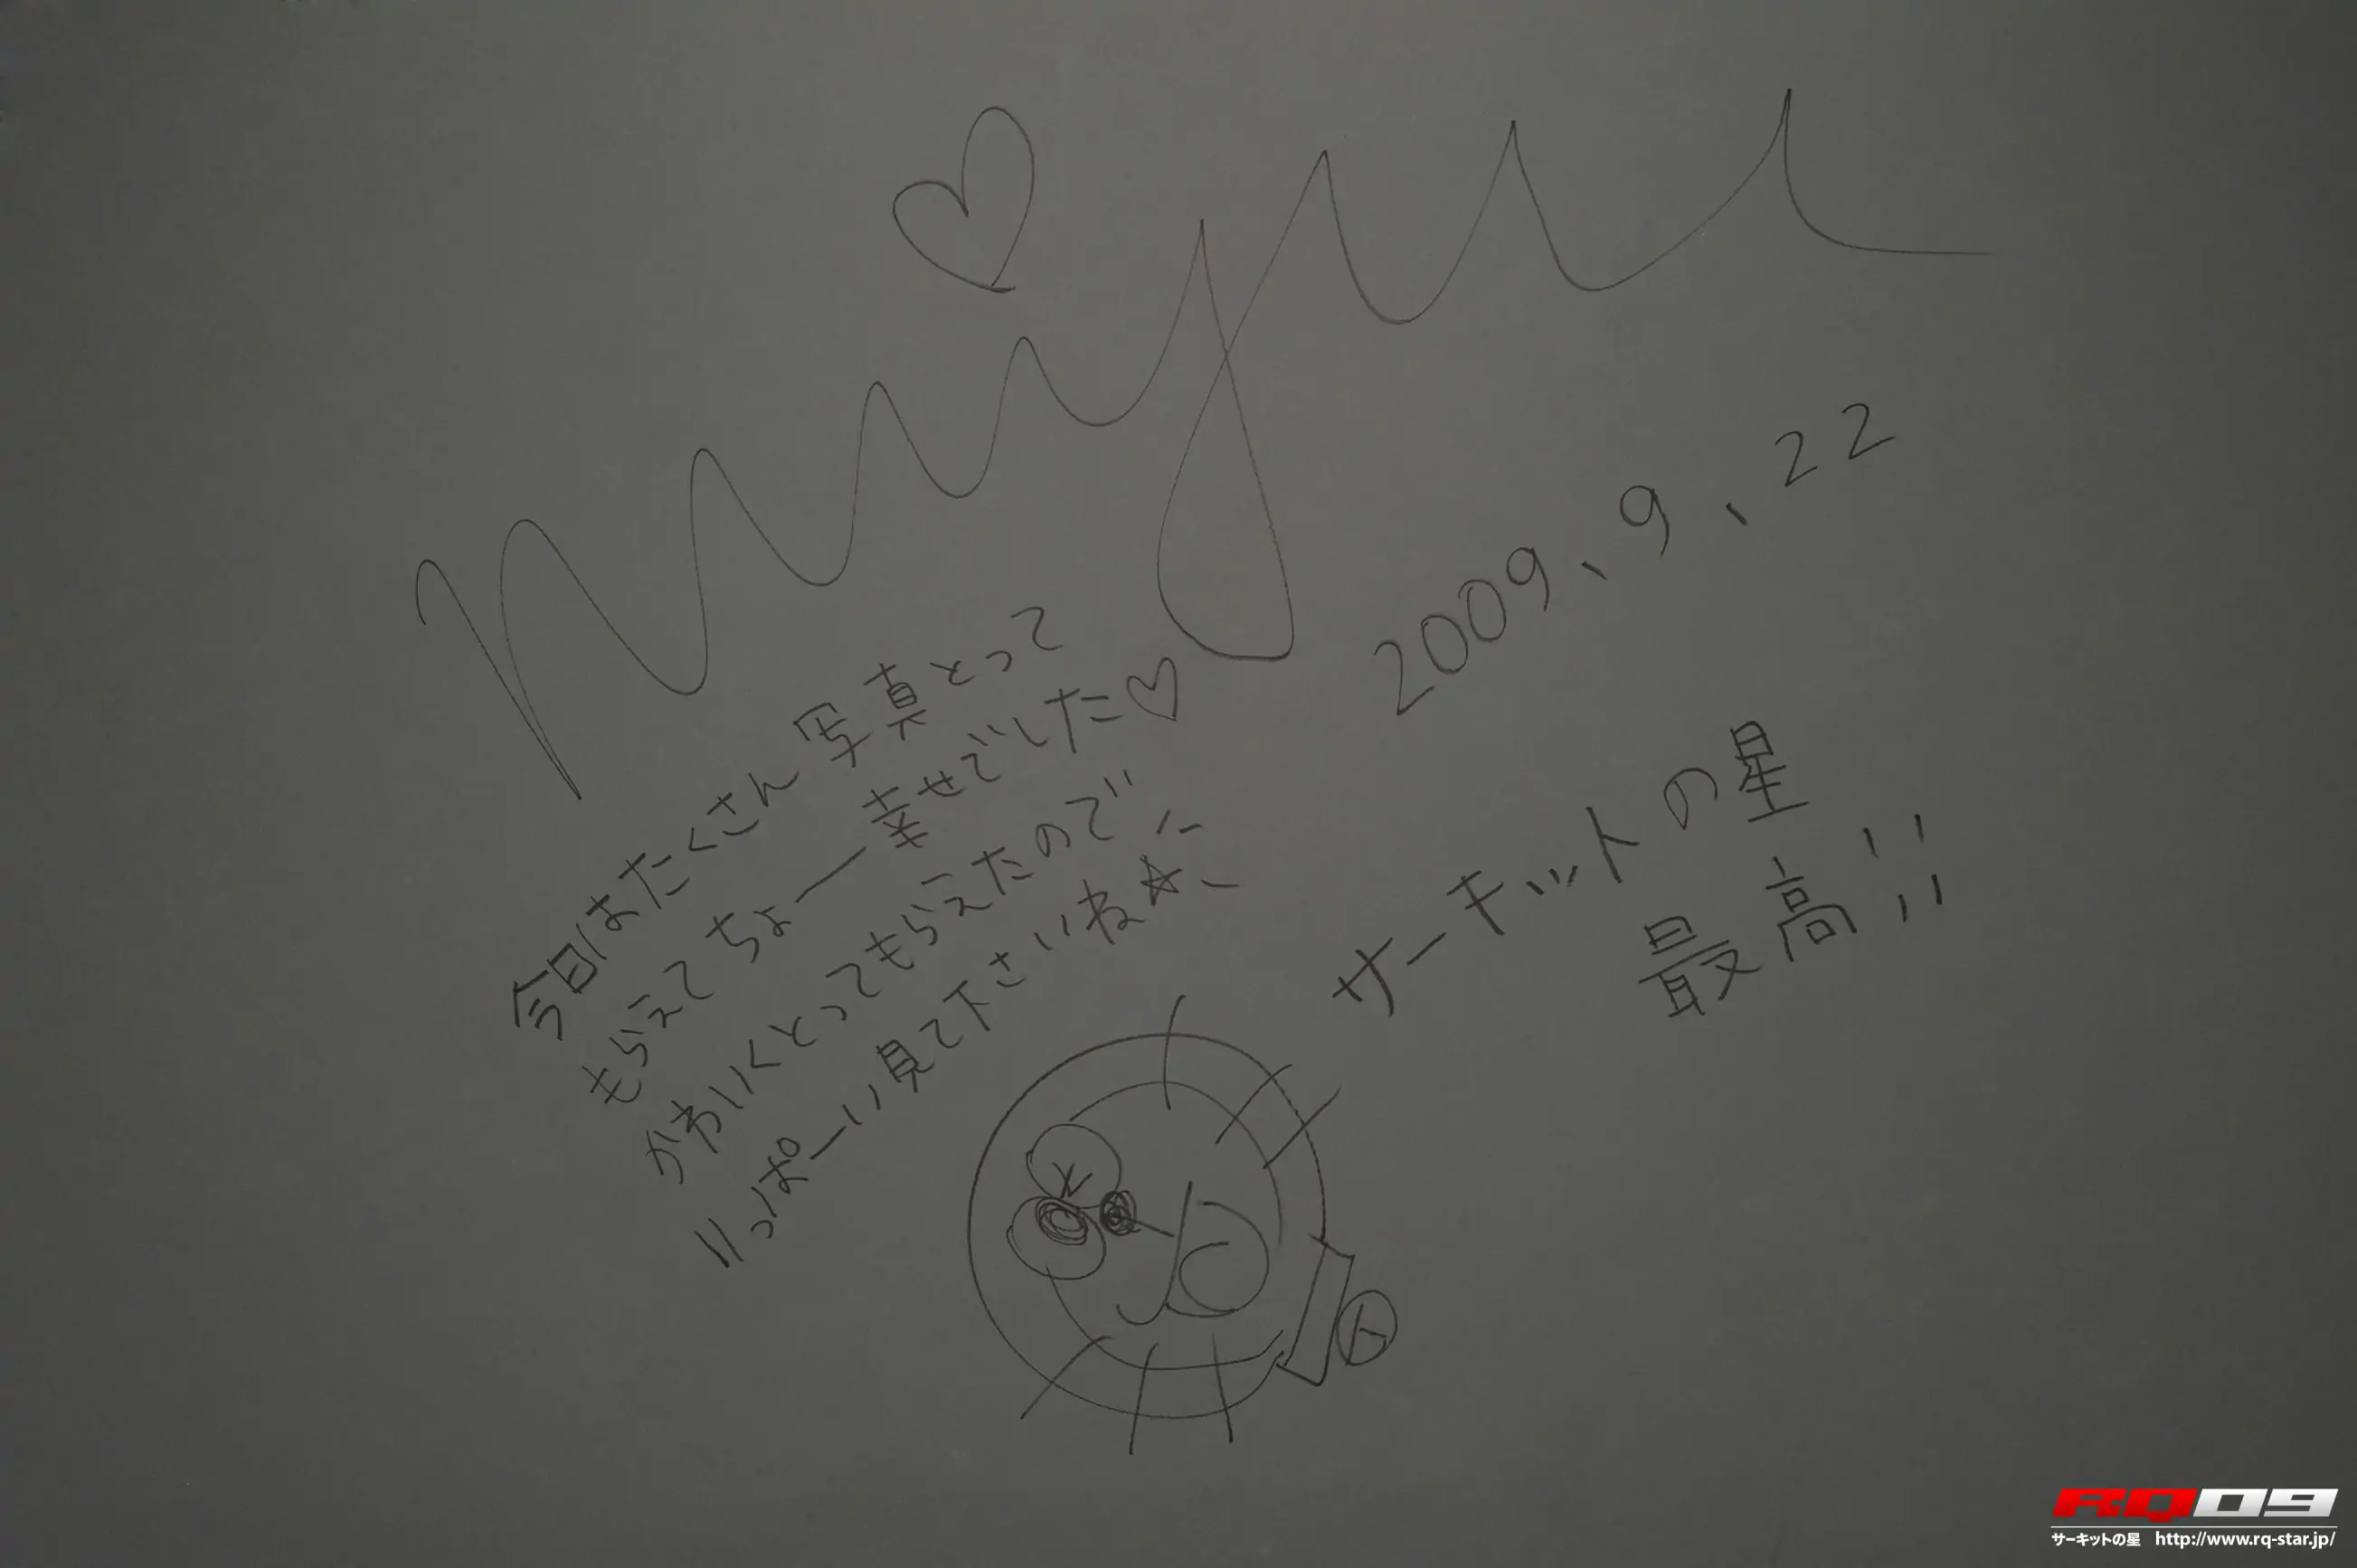 2009、9、22
今日はたくさん写真とって
もらえてちょー幸せでした♡
かわいくとってもらえたので
いっぱーい見て下さいね☆
サーキットの星
最高!!
RQ09
サーキットの星 http://www.rq-star.jp/